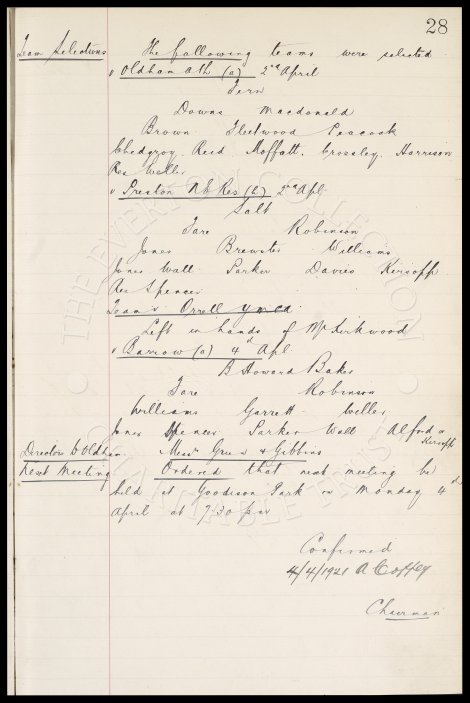 28
Team Selections The following teams were selected
v Oldham Ath (a) 2nd April
Fern
Downs Macdonald
Brown Fleetwood Peacock
Chedgzoy Reid Moffatt Crossley Harrison
Res Weller
v Preston N E Res (h) 2nd Apl
Salt
Fare Robinson
Jones Brewster Williams
Jones Wall Parker Davies Kirsopp
Res Spencer
Team v Orrell
Left in hands of Mr Kirkwood
v Barrow (a) 4th Apl
B Howard Baker
Fare Robinson
Williams Garrett Weller
Jones Spencer Parker Wall Alford or
Kirsopp
Directors to Oldham Messrs Green & Gibbins
Next Meeting Ordered that next meeting be
held at Goodison Park on Monday 4th
April at 7/30 pm
Confirmed
4/4/1921 A Coffey
Chairman
THE EVERTON COLLECTION
CHARITABLE TRUST